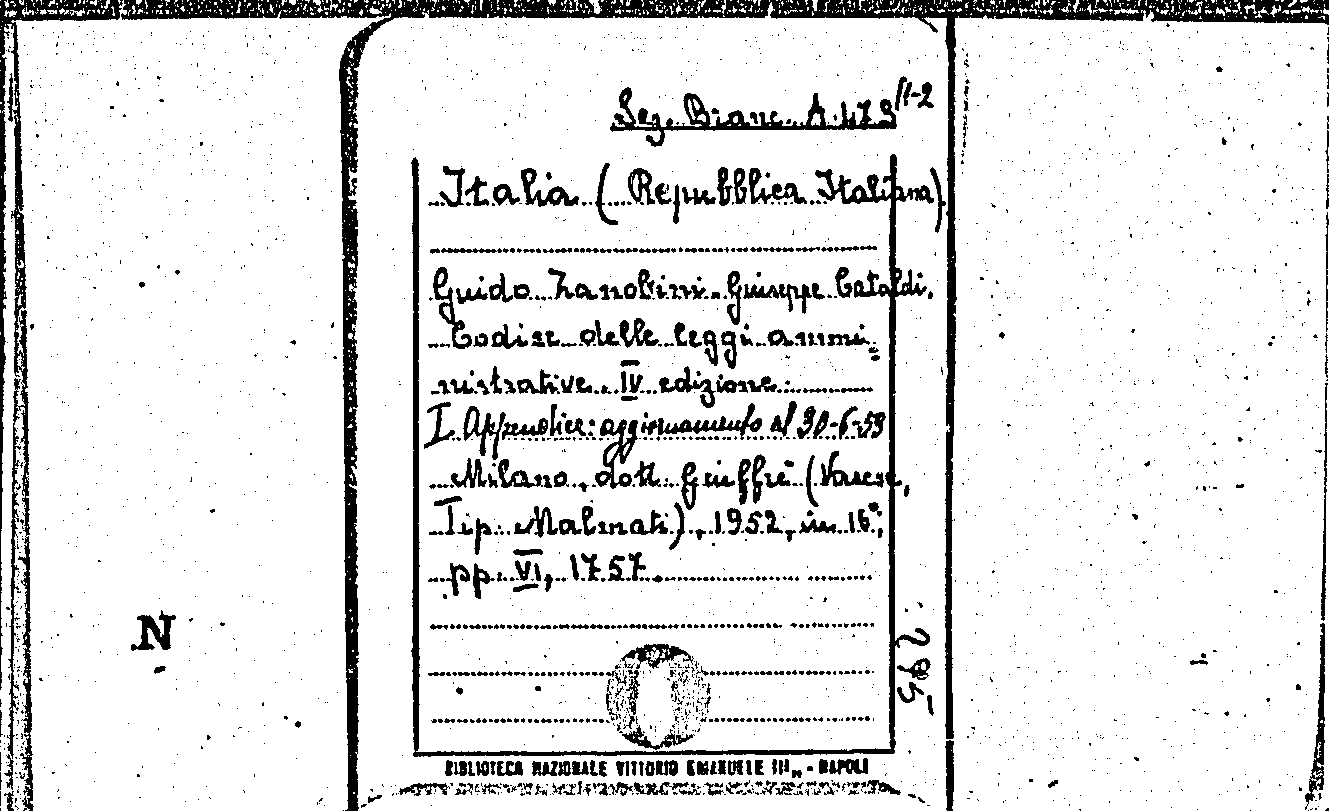 Sez. Branc. A. 473 /1-2
Italia (Repubblica Italiana)
Guido Zanobini - Giuseppe Cataldi.
Codice delle leggi ammi=
nistrative. IV edizione.
I Appendice: aggiornamento al 30-6-53
Milano, dott. Giuffrè (Varese,
Tip. Malnati), 1952, in 16°,
pp. VI, 1757.
N
BIBLIOTECA NAZIONALE VITTORIO EMANUELE III„ - NAPOLI